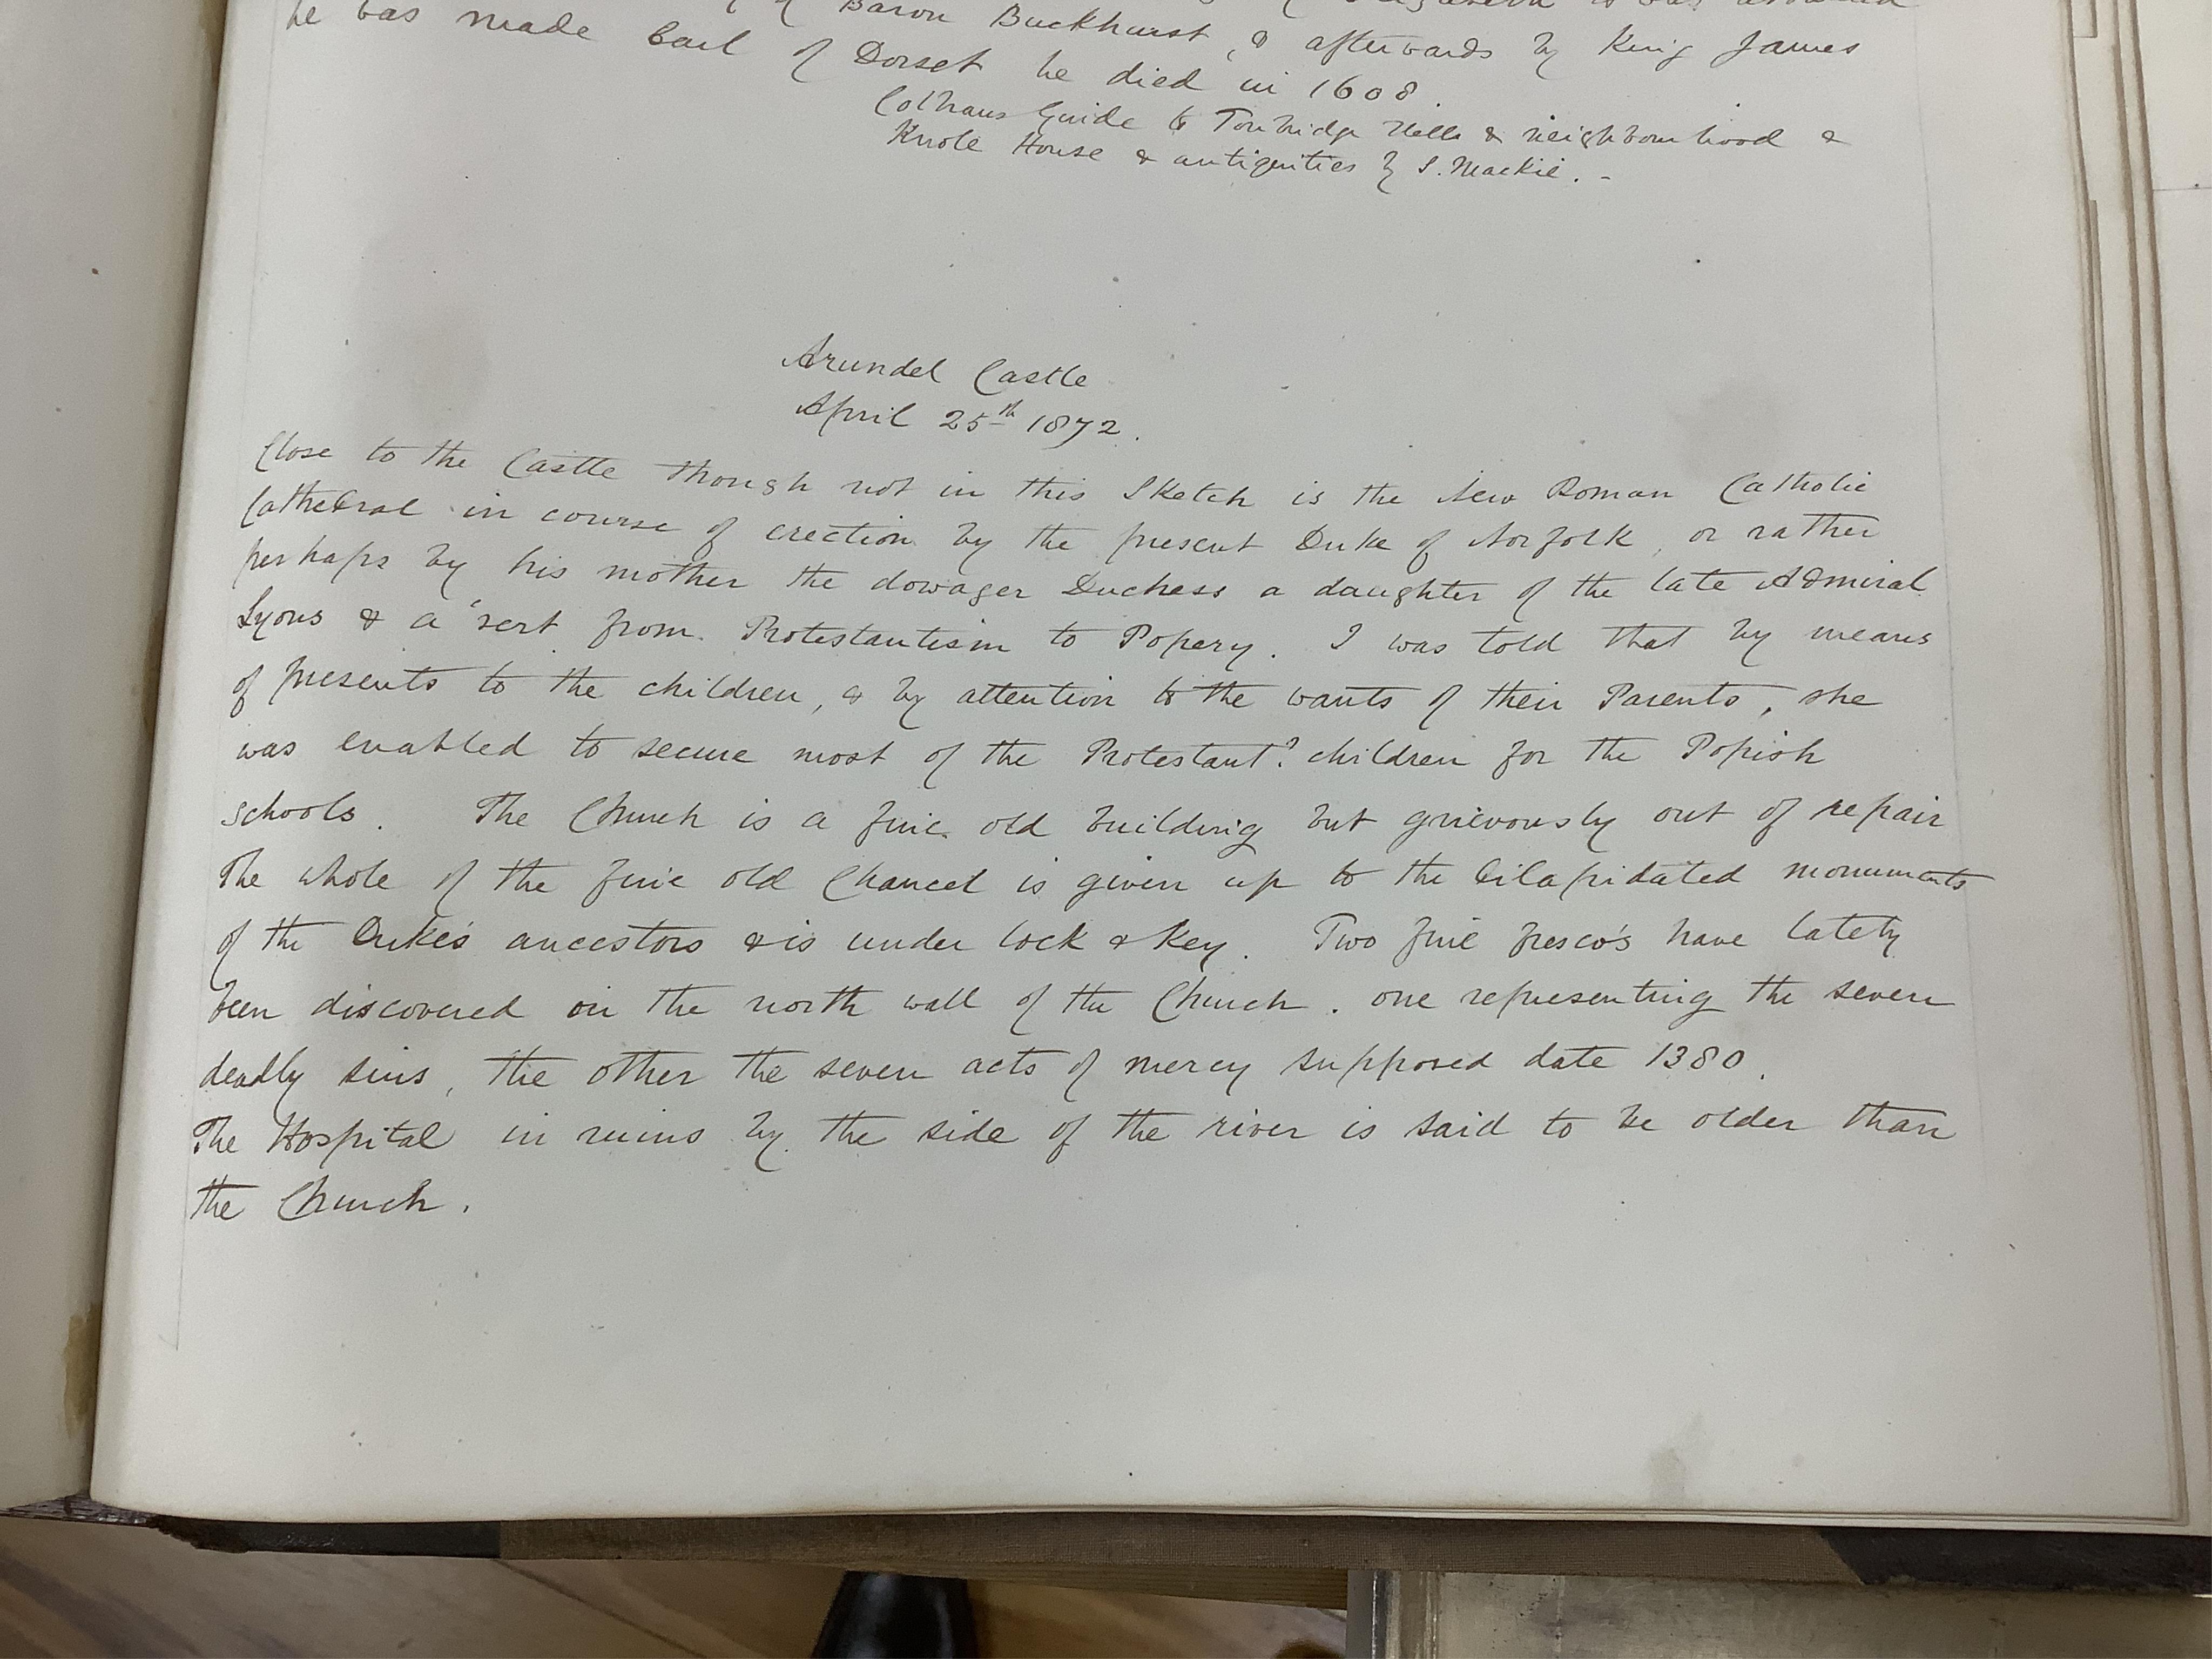 Baron Buckhurst, & afterwards by King James
he was made Earl of Dorset he died in 1608.
Colbrans Guide to Tonbridge Wells & neighbourhood &
Knole House & antiquities by S. Mackie. -
Arundel Castle
April 25th 1872.
Close to the Castle though not in this Sketch is the New Roman Catholic
Cathedral in course of erection by the present Duke of Norfolk, or rather
perhaps by his mother the dowager Duchess a daughter of the late Admiral
Lyons & a 'vert from Protestantism to Popery. I was told that by means
of presents to the children, & by attention to the wants of their Parents, she
was enabled to secure most of the Protestant? children for the Popish
schools. The Church is a fine old building but grievously out of repair
The whole of the fine old Chancel is given up to the dilapidated monuments
of the Duke's ancestors & is under lock & key. Two fine fresco's have lately
been discovered on the north wall of the Church. one representing the seven
deadly sins, the other the seven acts of mercy supposed date 1380.
The Hospital in ruins by the side of the river is said to be older than
the Church.